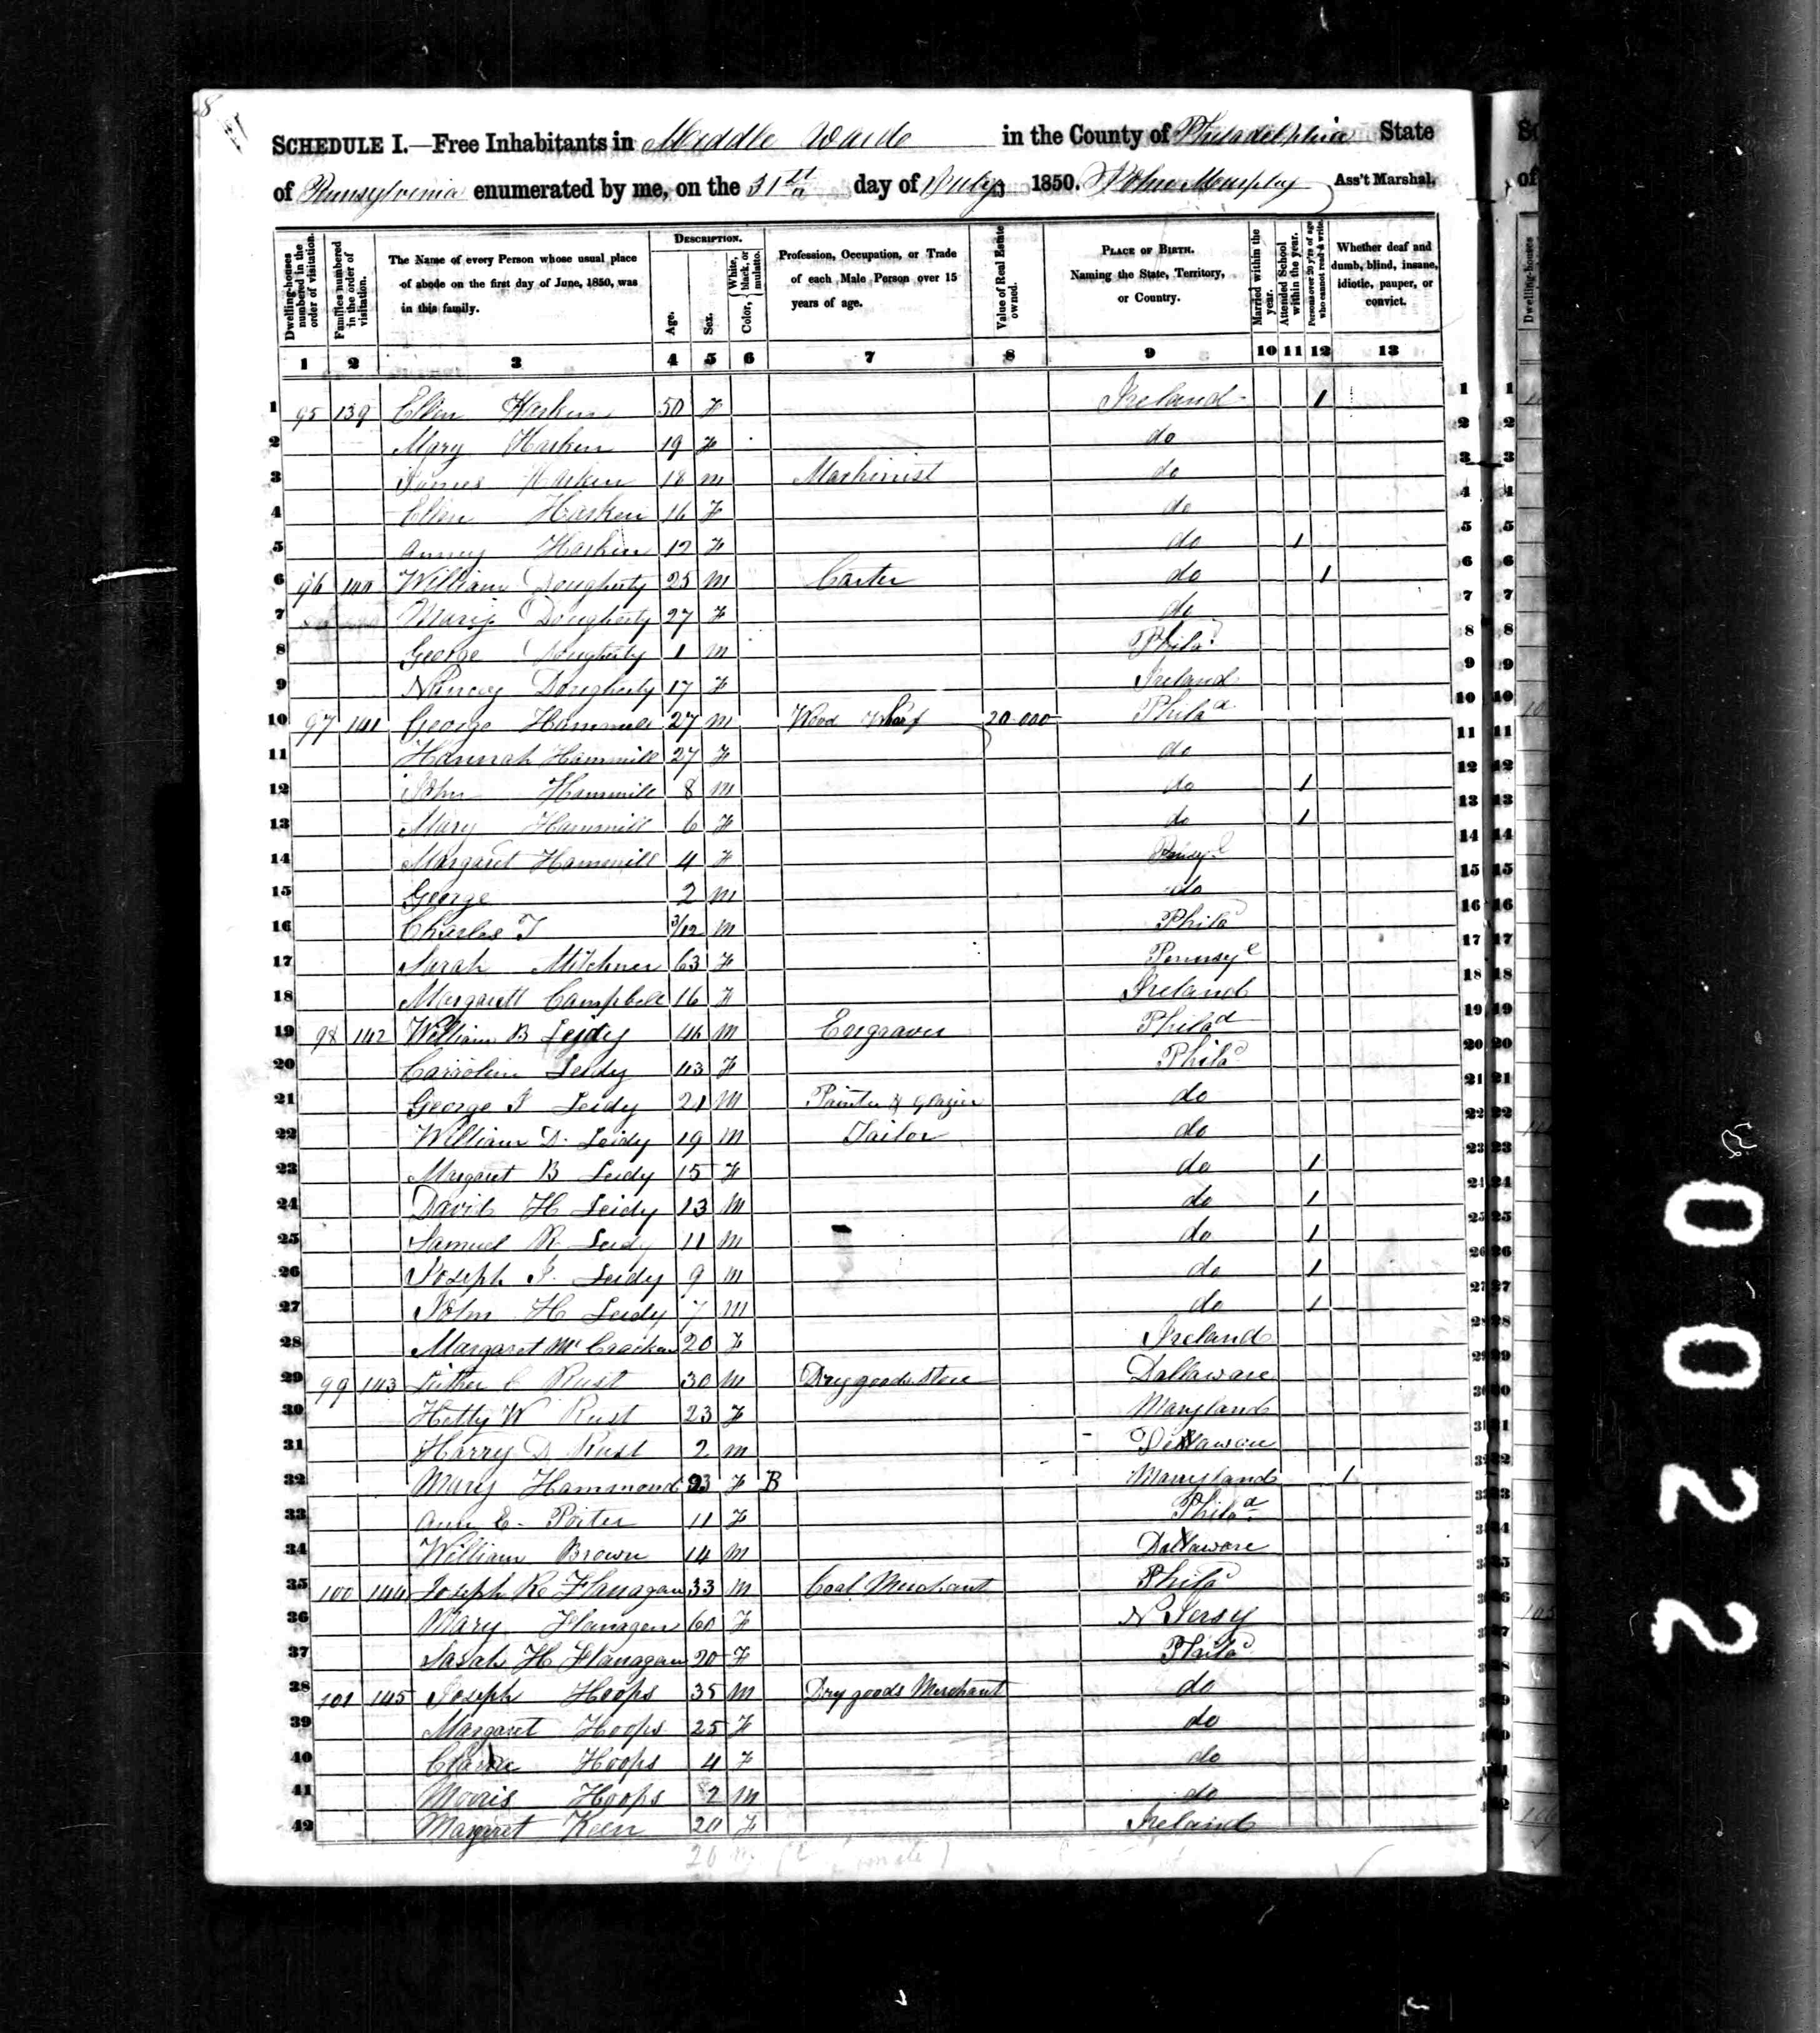 8
SCHEDULE I.—Free Inhabitants in Middle Warde in the County of Philadelphia State
of Pennsylvenia enumerated by me, on the 31st day of July 1850. John Murphy Ass't Marshal.
Dwelling-houses numbered in the order of visitation. Families numbered in the order of visitation. The Name of every Person whose usual place of abode on the first day of June, 1850, was in this family. DESCRIPTION. Age. Sex. Color, { White, black, or mulatto. Profession, Occupation, or Trade of each Male Person over 15 years of age. Value of Real Estate owned. PLACE OF BIRTH. Naming the State, Territory, or Country. Married within the year. Attended School within the year. Persons over 20 y'rs of age who cannot read & write. Whether deaf and dumb, blind, insane, idiotic, pauper, or convict.
1 2 3 4 5 6 7 8 9 10 11 12 13
1 95 139 Ellen Hasken 50 F Ireland 1 1
2 Mary Hasken 19 F do 2
3 James Hasken 18 m Machinist do 3
4 Ellen Hasken 16 F do 4
5 Anney Hasken 12 F do 1 5
6 96 140 William Dougherty 25 m Carter do 1 6
7 Dougherty 27 F do 7
8 George Dougherty 1 m Phila 8
9 Nancy Dougherty 17 F Ireland 9
10 97 141 George Hammill 27 m Wood Wharf 20.000 Philad 10
11 Hannah Hammill 27 F do 11
12 John Hammill 8 m do 1 12
13 Mary Hammill 6 F do 1 13
14 Margaret Hammill 4 F 14
15 George 2 m do 15
16 Charles T 3/12 m Phila 16
17 Sarah Mitchner 63 F Pennsyl 17
18 Margarett Campbell 16 F Ireland 18
19 98 142 William B Leidy 46 m Engraver Philad 19
20 Carroline Leidy 43 F Philad 20
21 George F Leidy 21 m Painter & Glazier do 21
22 William D. Leidy 19 m Tailor do 22
23 Margaret B Leidy 15 F do 1 23
24 David H Leidy 13 m do 1 24
25 Samuel R Leidy 11 m do 1 25
26 Joseph F. Leidy 9 m do 1 26
27 John H Leidy 7 m do 1 27
28 Margaret McCracken 20 F Ireland 28
29 99 143 Luther C Rust 30 m Dry goods Store Dallaware 29
30 Hetty W Rust 23 F Maryland 30
31 Harry D Rust 2 m Dellaware 31
32 Mary Hammond 23 F B Maryland 1 32
33 Ann E. Porter 11 F Philad 33
34 William Brown 14 m Dallaware 34
35 100 144 Joseph R Flanagan 33 m Coal Merchant Philad 35
36 Mary Flanagen 60 F N Jersy 36
37 Sarah H Flanagan 20 F Philad 37
38 101 145 Joseph Hoops 35 m Dry goods Merchant do 38
39 Margaret Hoops 25 F do 39
40 Hoops 4 F do 40
41 Morris Hoops 2 m do 41
42 Margaret Keen 20 F Ireland 42
0022